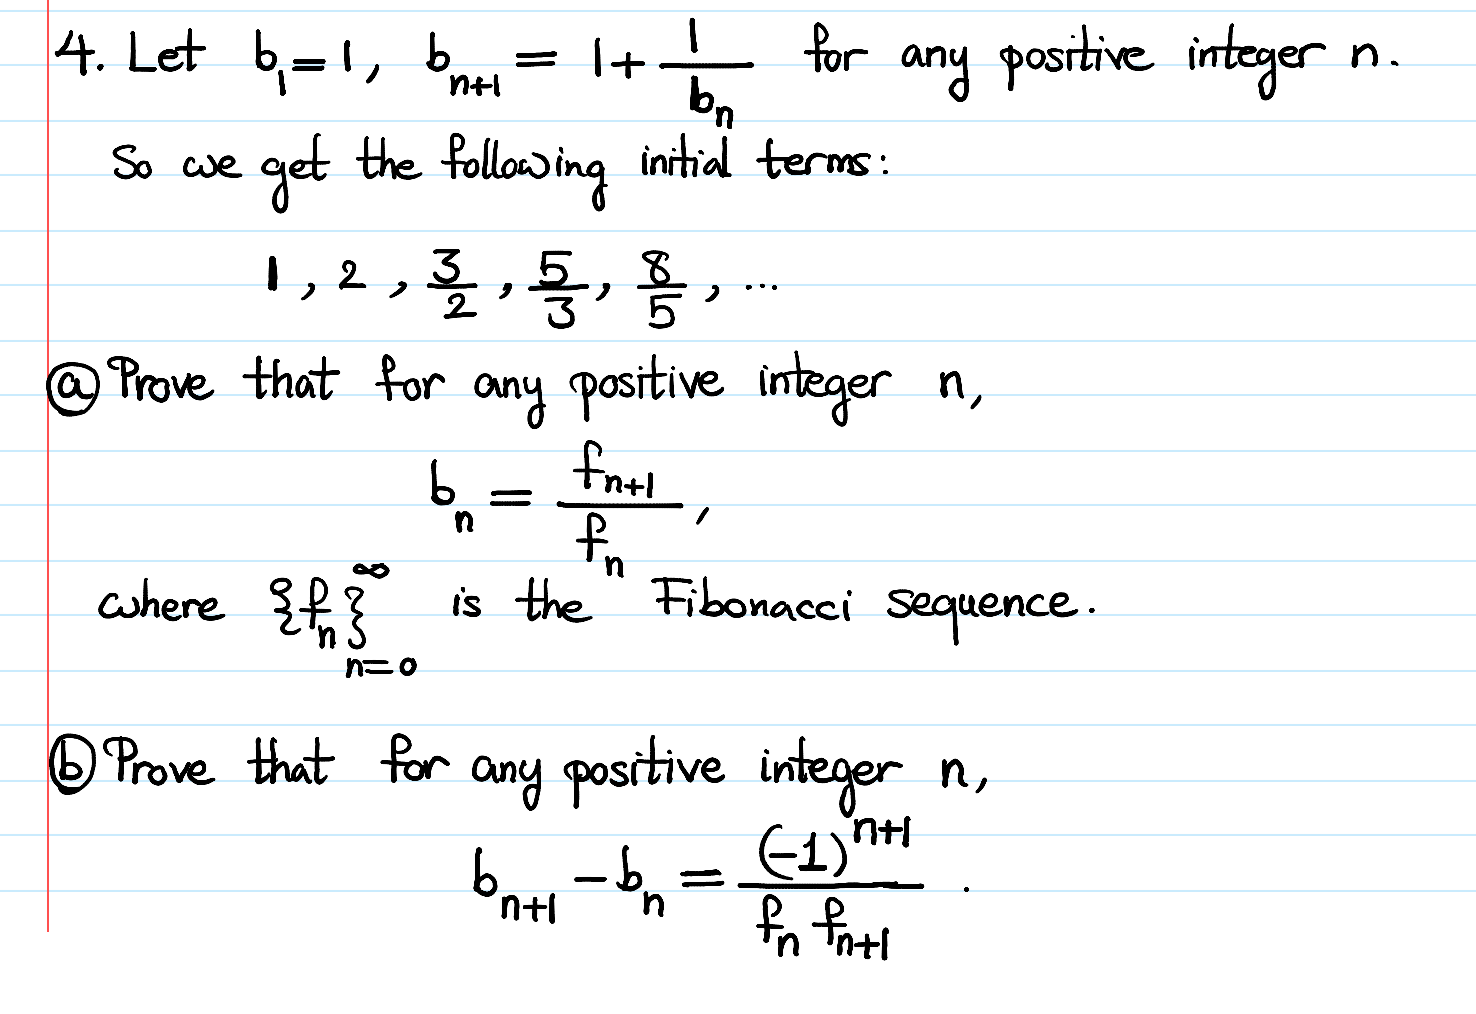 4. Let b₁ = 1, bₙ₊₁ = 1 + 1/bₙ for any positive integer n.
So we get the following initial terms:
1, 2, 3/2, 5/3, 8/5, ...
ⓐ Prove that for any positive integer n,
bₙ = fₙ₊₁/fₙ,
where {fₙ}∞n=0 is the Fibonacci sequence.
ⓑ Prove that for any positive integer n,
bₙ₊₁ - bₙ = (-1)ⁿ⁺¹/fₙ fₙ₊₁.